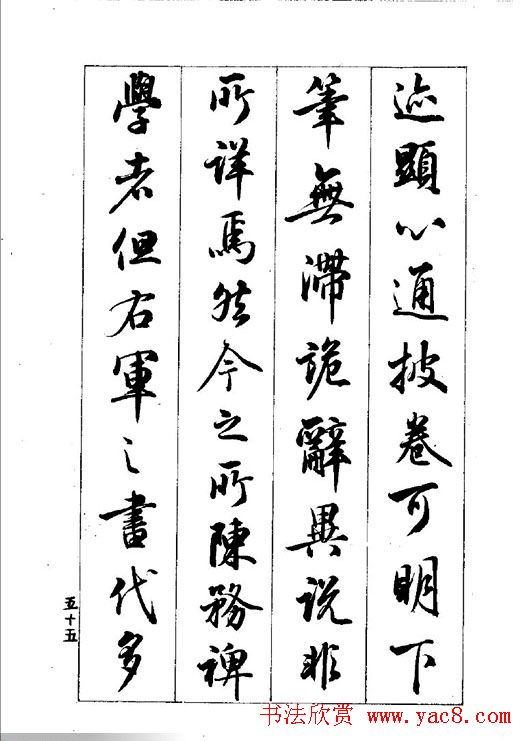 迹顯心通披卷可明下
筆無滯詭辭異説非
所詳焉然今之所陳務裨
學者但右軍之書代多
五十五
书法欣赏 www.yac8.com